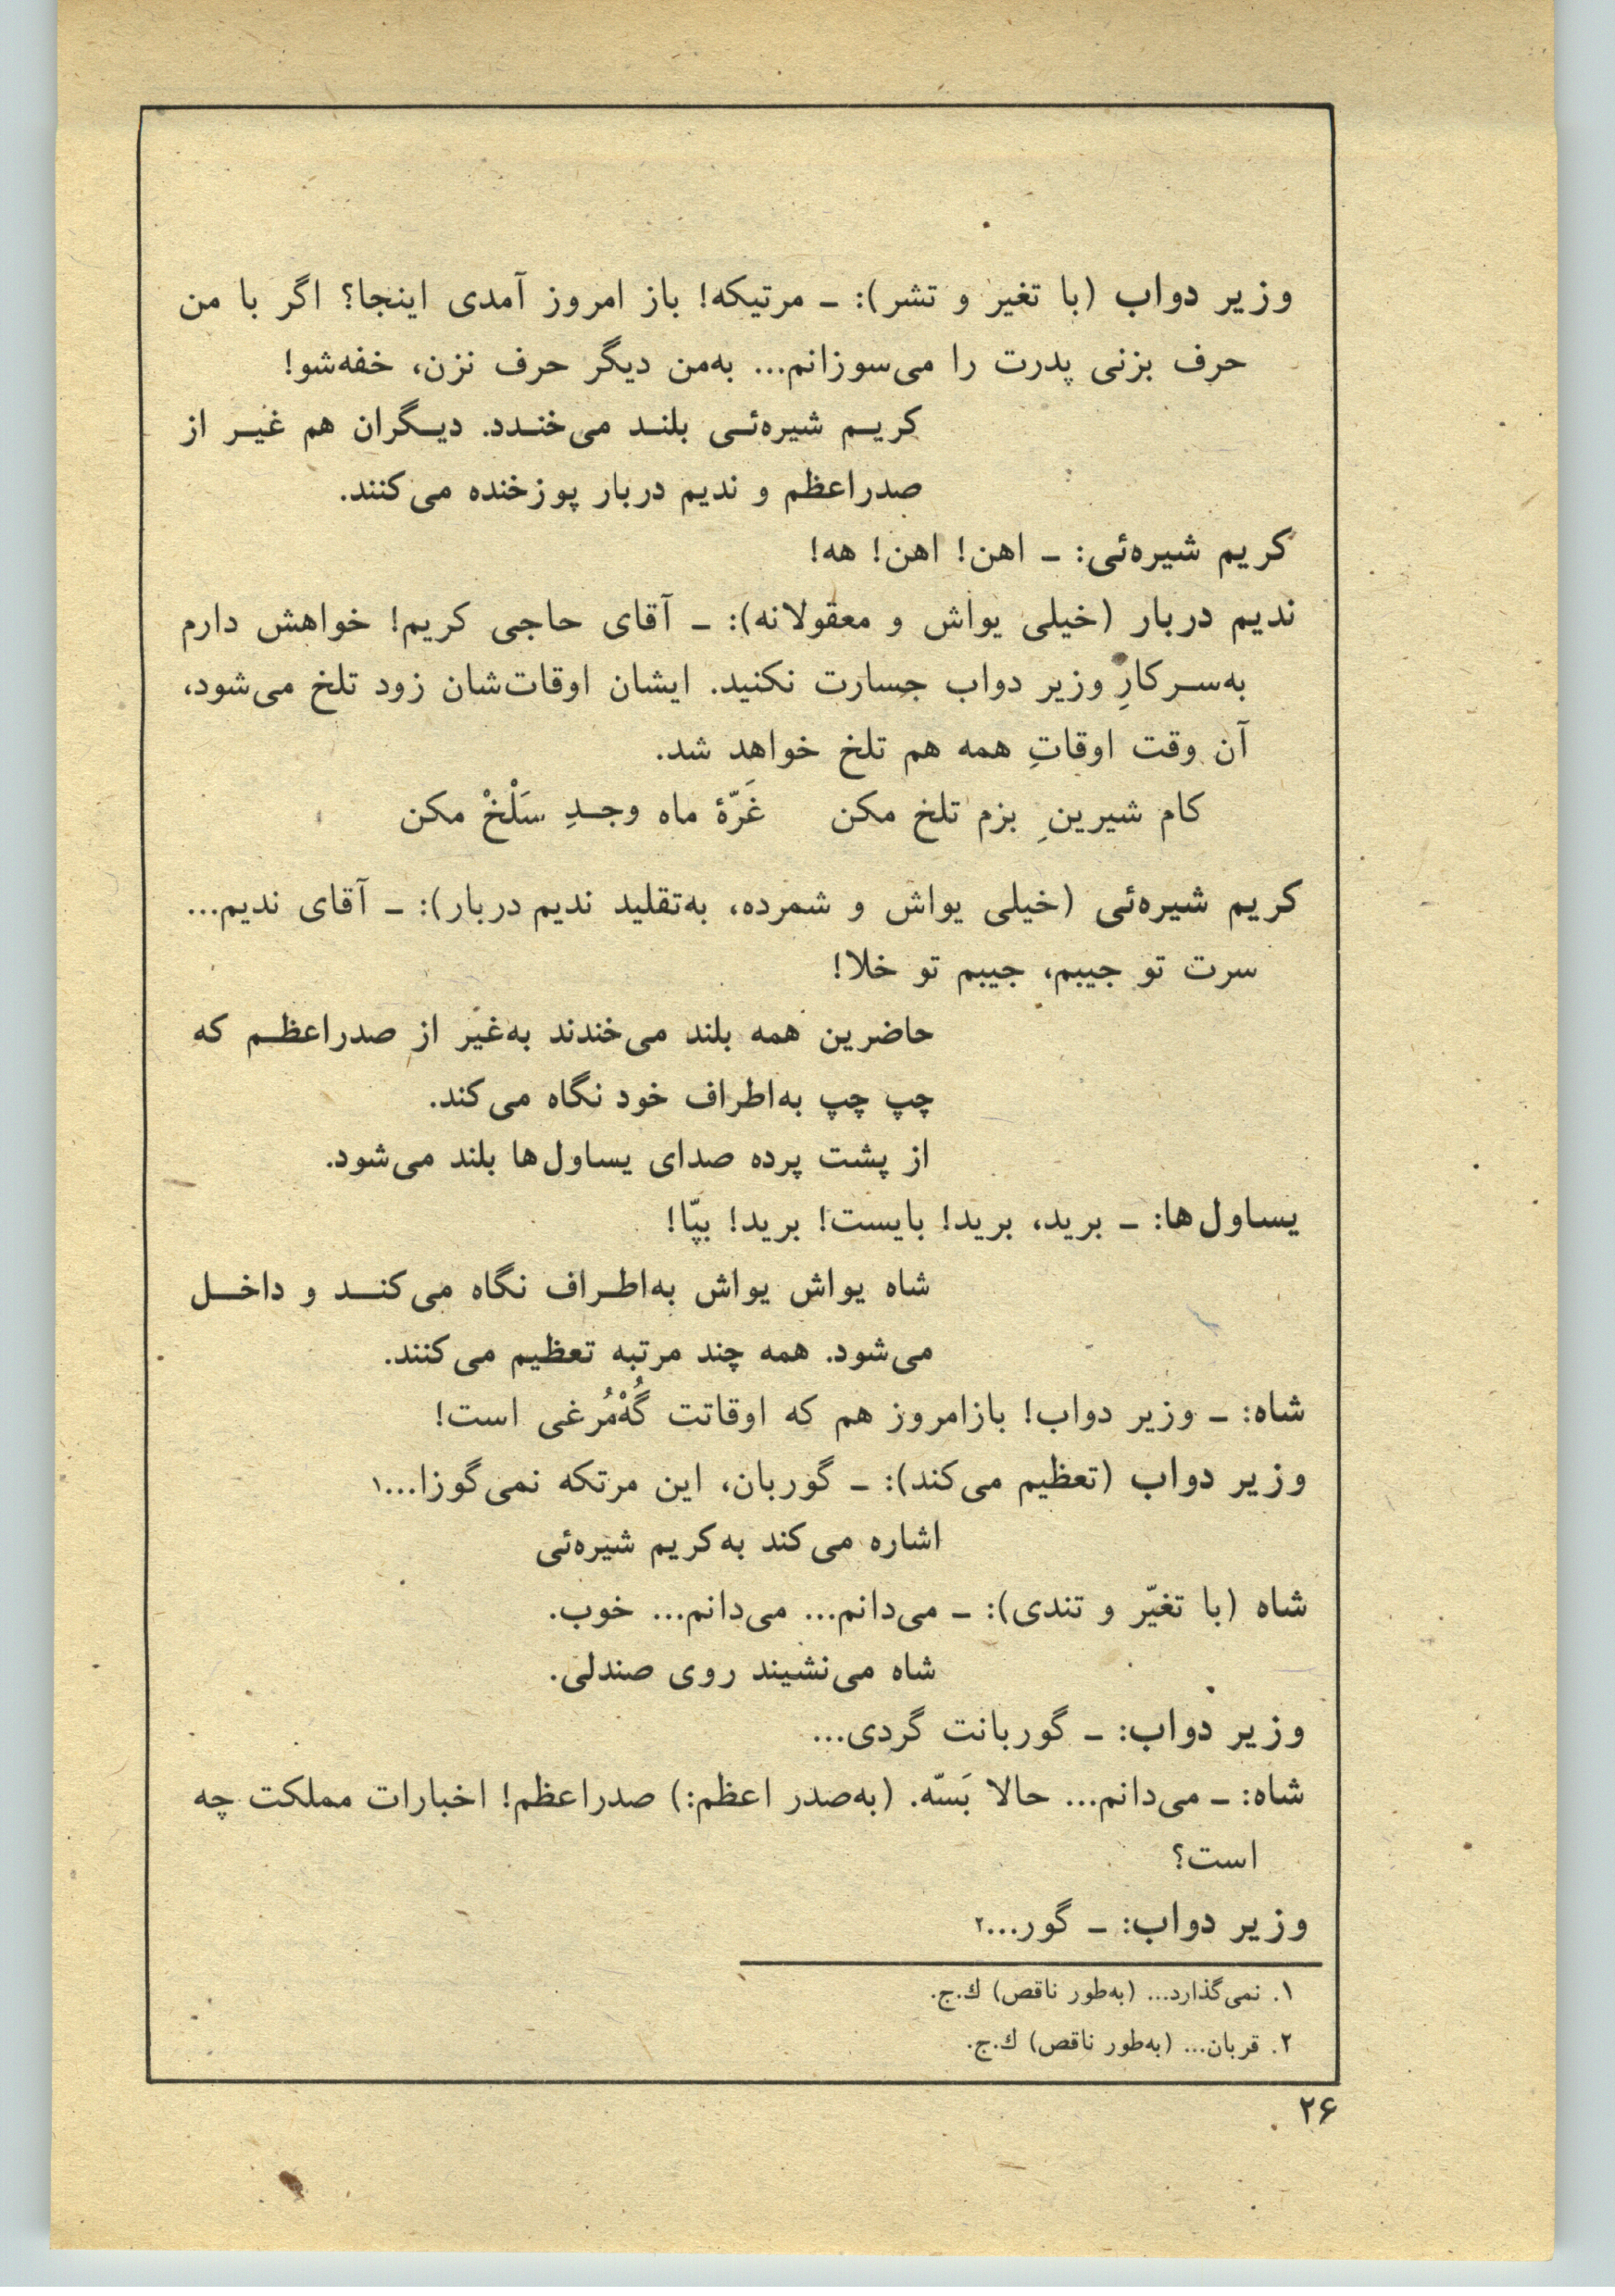 وزیر دواب (با تغیر و تشر): ـ مرتیکه! باز امروز آمدی اینجا؟ اگر با من
حرف بزنی پدرت را می‌سوزانم... به‌من دیگر حرف نزن، خفه‌شو!
کریم شیره‌ئی بلند می‌خندد. دیگران هم غیر از
صدراعظم و ندیم دربار پوزخنده می‌کنند.
کریم شیره‌ئی: ـ اهن! اهن! هه!
ندیم دربار (خیلی یواش و معقولانه): ـ آقای حاجی کریم! خواهش دارم
به‌سرکارِ وزیر دواب جسارت نکنید. ایشان اوقات‌شان زود تلخ می‌شود،
آن وقت اوقاتِ همه هم تلخ خواهد شد.
کام شیرینِ بزم تلخ مکن    غَرّهٔ ماه وجدِ سَلْخْ مکن
کریم شیره‌ئی (خیلی یواش و شمرده، به‌تقلید ندیم دربار): ـ آقای ندیم...
سرت تو جیبم، جیبم تو خلا!
حاضرین همه بلند می‌خندند به‌غیر از صدراعظم که
چپ چپ به‌اطراف خود نگاه می‌کند.
از پشت پرده صدای یساول‌ها بلند می‌شود.
یساول‌ها: ـ برید، برید! بایست! برید! بپّا!
شاه یواش یواش به‌اطراف نگاه می‌کند و داخل
می‌شود. همه چند مرتبه تعظیم می‌کنند.
شاه: ـ وزیر دواب! بازامروز هم که اوقاتت گُهْ‌مُرغی است!
وزیر دواب (تعظیم می‌کند): ـ گوربان، این مرتکه نمی‌گوزا...۱
اشاره می‌کند به‌کریم شیره‌ئی
شاه (با تغیّر و تندی): ـ می‌دانم... می‌دانم... خوب.
شاه می‌نشیند روی صندلی.
وزیر دواب: ـ گوربانت گردی...
شاه: ـ می‌دانم... حالا بَسّه. (به‌صدر اعظم:) صدراعظم! اخبارات مملکت چه
است؟
وزیر دواب: ـ گور...۲
۱. نمی‌گذارد... (به‌طور ناقص) ك.ج.
۲. قربان... (به‌طور ناقص) ك.ج.
۲۶